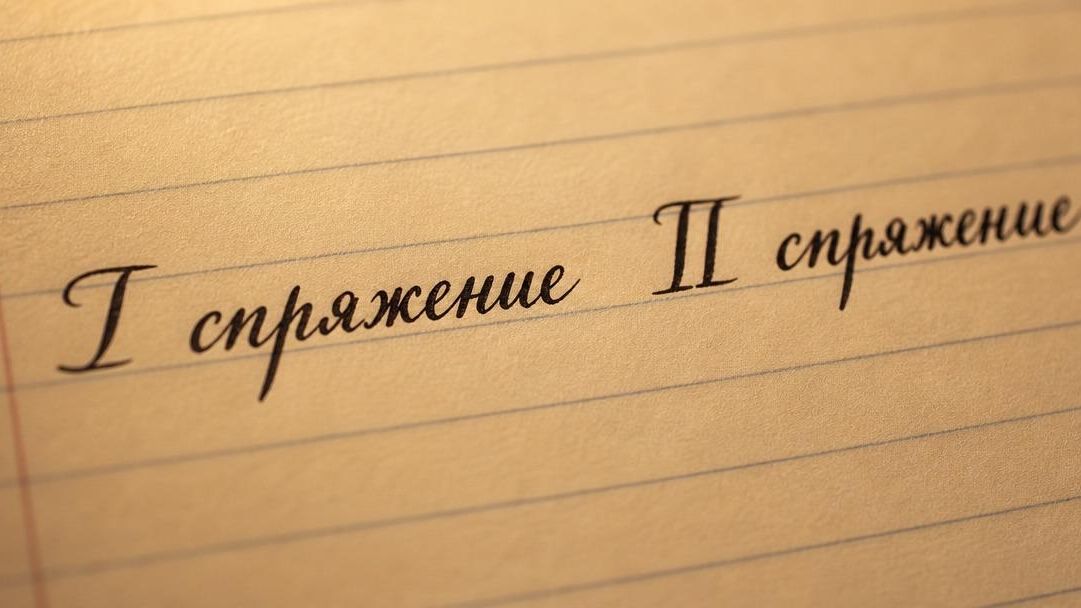 I спряжение II спряжение